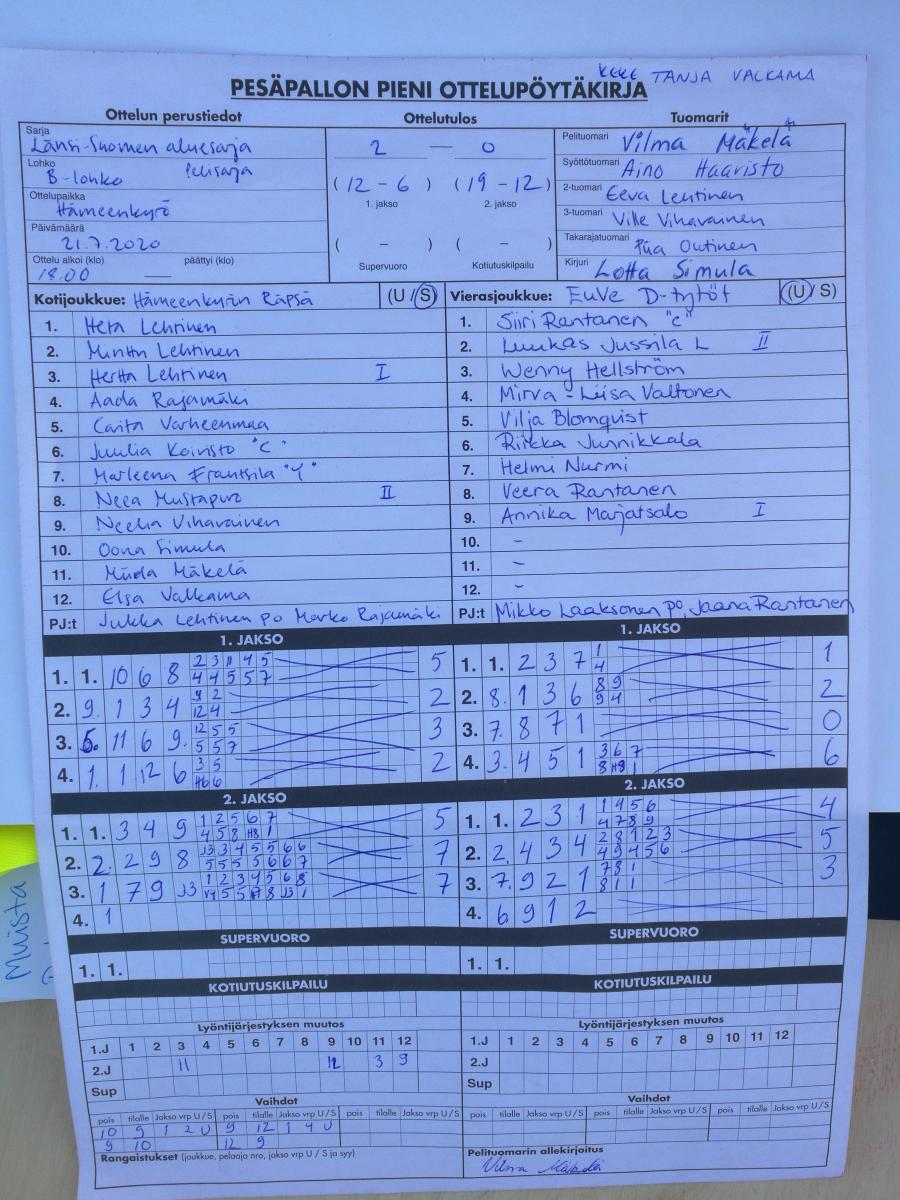 KKKE TANJA VALKAMA
PESÄPALLON PIENI OTTELUPÖYTÄKIRJA
Ottelun perustiedot Ottelutulos Tuomarit
Sarja
Länsi-Suomen aluesarja
Lohko
B-lohko Pelisarja
Ottelupaikka
Hämeenkyrö
Päivämäärä
21.7.2020
Ottelu alkoi (klo) päättyi (klo)
18.00 —
2 — 0
( 12 - 6 ) ( 19 - 12 )
1. jakso 2. jakso
( - ) ( - )
Supervuoro Kotiutuskilpailu
Pelituomari Vilma Mäkelä
Syöttötuomari Aino Haaristo
2-tuomari Eeva Lehtinen
3-tuomari Ville Vihavainen
Takarajatuomari Piia Outinen
Kirjuri Lotta Simula
Kotijoukkue: Hämeenkyrön Räpsä (U / S)
1. Heta Lehtinen
2. Minttu Lehtinen
3. Hertta Lehtinen I
4. Aada Rajamäki
5. Carita Varheenmaa
6. Juulia Koivisto "C"
7. Marleena Frantsila "Y"
8. Neea Mustapuro II
9. Neelia Vihavainen
10. Oona Simula
11. Miida Mäkelä
12. Elsa Valkama
PJ:t Jukka Lehtinen po Marko Rajamäki
Vierasjoukkue: EuVe D-tytöt (U / S)
1. Siiri Rantanen "C"
2. Luukas Jussila L II
3. Wenny Hellström
4. Mirva-Liisa Valtonen
5. Vilja Blomqvist
6. Riikka Junnikkala
7. Helmi Nurmi
8. Veera Rantanen
9. Annika Marjatsalo I
10. -
11. -
12. -
PJ:t Mikko Laaksonen po Jaana Rantanen
1. JAKSO
1. 1. 10 6 8 2 3 11 4 5 5
4 4 5 5 7
2. 9. 1 3 4 2 2
12 4
3. 5. 11 6 9. 12 5 5 3
5 5 7
4. 1. 1 12 6 3 5 2
H6 6
2. JAKSO
1. 1. 3 4 9 1 2 5 6 7 5
4 5 8 H8 1
2. 2. 2 9 8 J3 3 4 5 5 6 6 7
5 5 5 5 6 6 7
3. 1 7 9 J3 1 2 3 4 5 6 8 7
5 5 8 J3 1
4. 1
SUPERVUORO
1. 1.
KOTIUTUSKILPAILU
1. JAKSO
1. 1. 2 3 7 1 1
4
2. 8. 1 3 6 8 9 2
9 4
3. 7. 8 7 1 0
4. 3. 4 5 1 3 6 7 6
8 H8 1
2. JAKSO
1. 1. 2 3 1 1 4 5 6 4
4 7 8 9
2. 2. 4 3 4 2 8 1 2 3 5
4 9 4 5 6
3. 7. 9 2 1 7 8 1 3
8 1 1
4. 6 9 1 2
SUPERVUORO
1. 1.
KOTIUTUSKILPAILU
Lyöntijärjestyksen muutos
1.J 1 2 3 4 5 6 7 8 9 10 11 12
2.J 11 12 3 9
Sup
Vaihdot
pois tilalle Jakso vrp U/S pois tilalle Jakso vrp U/S pois tilalle Jakso vrp U/S
10 9 1 2 U 9 12 1 4 U
9 10 12 9
Rangaistukset (joukkue, pelaaja nro, jakso vrp U / S ja syy)
Lyöntijärjestyksen muutos
1.J 1 2 3 4 5 6 7 8 9 10 11 12
2.J
Sup
Vaihdot
pois tilalle Jakso vrp U/S pois tilalle Jakso vrp U/S pois tilalle Jakso vrp U/S
Pelituomarin allekirjoitus
Vilma Mäkelä
Muista